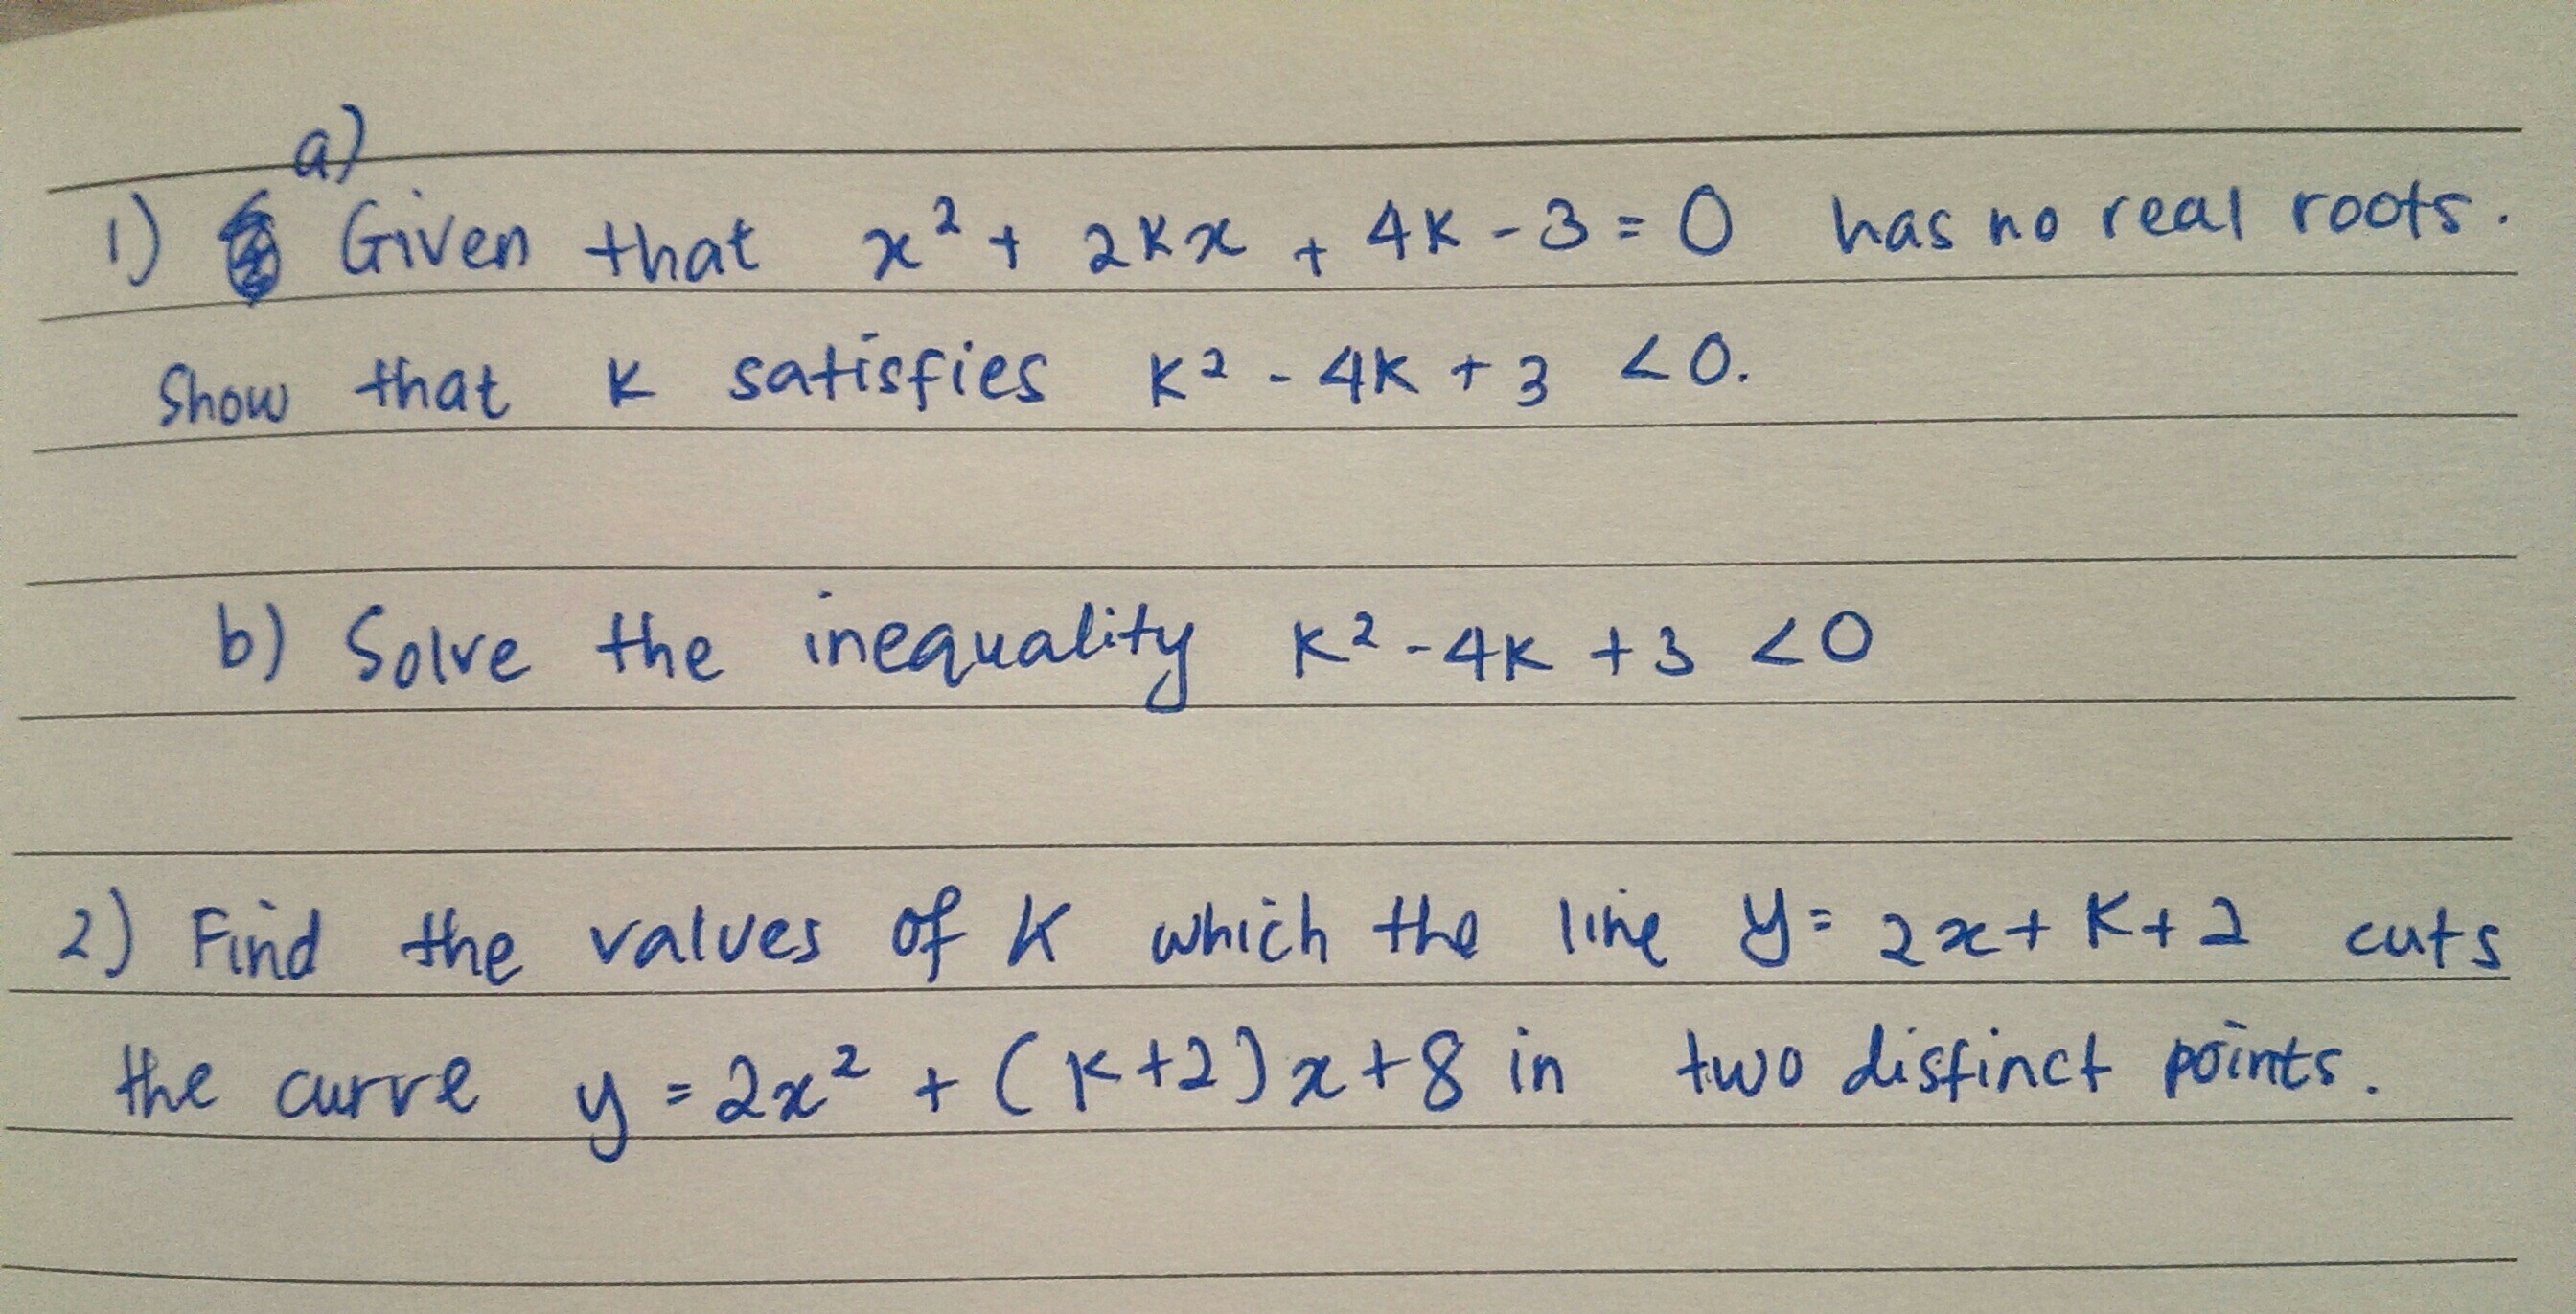 a)
1) Given that x² + 2kx + 4k - 3 = 0 has no real roots.
Show that k satisfies k² - 4k + 3 < 0.
b) Solve the inequality k² - 4k + 3 < 0
2) Find the values of k which the line y = 2x + k + 2 cuts
the curve y = 2x² + (k+2)x + 8 in two distinct points.